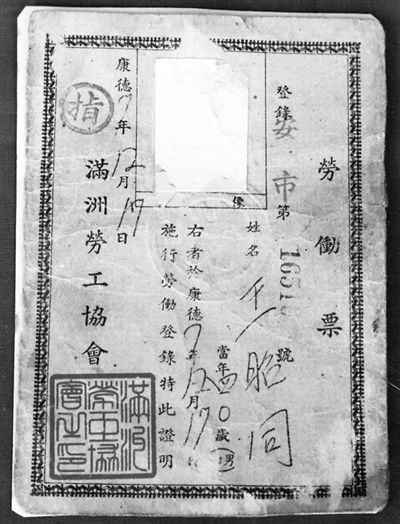 勞働票
登錄安市第1651號
姓名 于昭同
當年四〇歲(男)
右者於康德7年12月17日
施行勞働登錄特此證明
像
康德7年12月17日
指
滿洲勞工協會
滿洲
勞工協
會之印